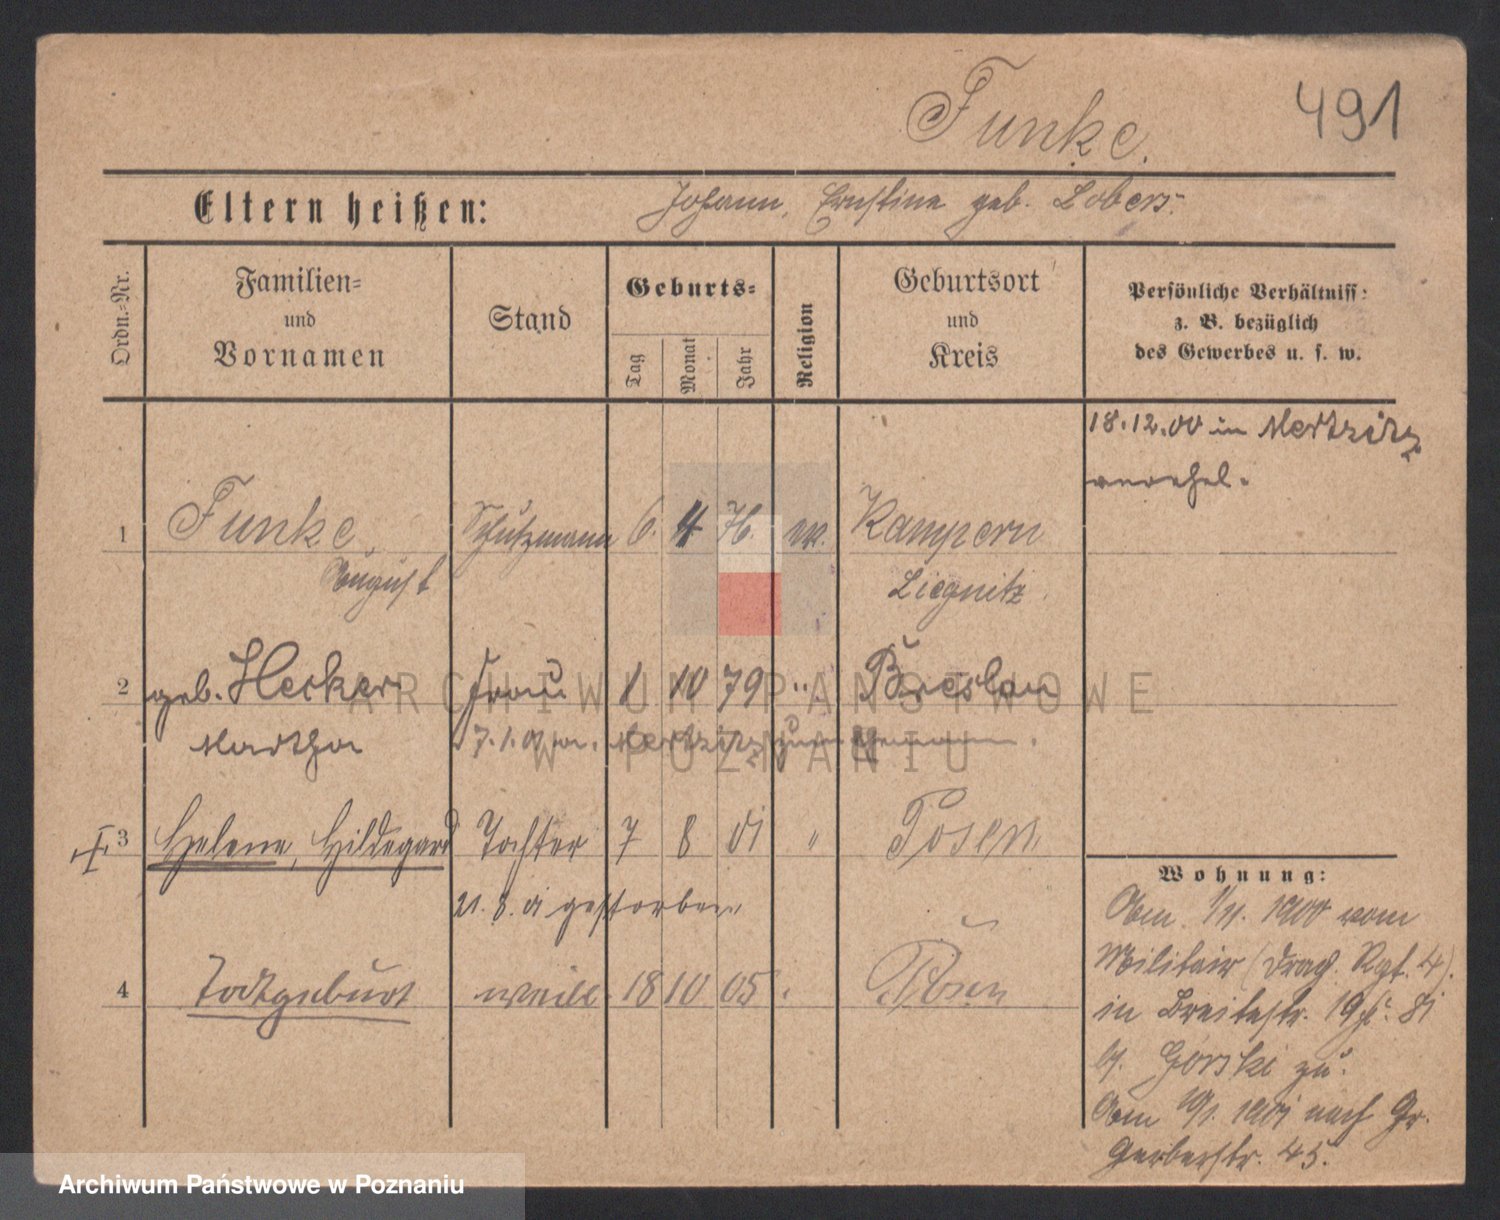 Funke.
491
Eltern heißen:
Johann, Ernstine geb. Lobers.
Ordn.-Nr.
Familien-
und
Vornamen
Stand
Geburts-
Tag
Monat
Jahr
Religion
Geburtsort
und
Kreis
Persönliche Verhältniss:
z. B. bezüglich
des Gewerbes u. s. w.
18.12.00 in Mertzitz
verehel.
1 Funke Schutzmann 6. 4 76. ev. Kampern
August Liegnitz
2 geb. Hecker Frau 1 10 79 " Breslau
Martha 7.1.01 v. Mertzitz
3 Helene, Hildegard Tochter 7 8 01 " Posen
21.8.01 gestorben
4 Todtgeburt weibl. 18 10 05 Posen
Wohnung:
Am 1/11. 1900 vom
Militair (Drag. Rgt. 4).
in Breitestr. 19
b. Górski zu.
Am 10/1. 1901 nach Gr.
Gerberstr. 45.
ARCHIWUM PAŃSTWOWE
W POZNANIU
Archiwum Państwowe w Poznaniu